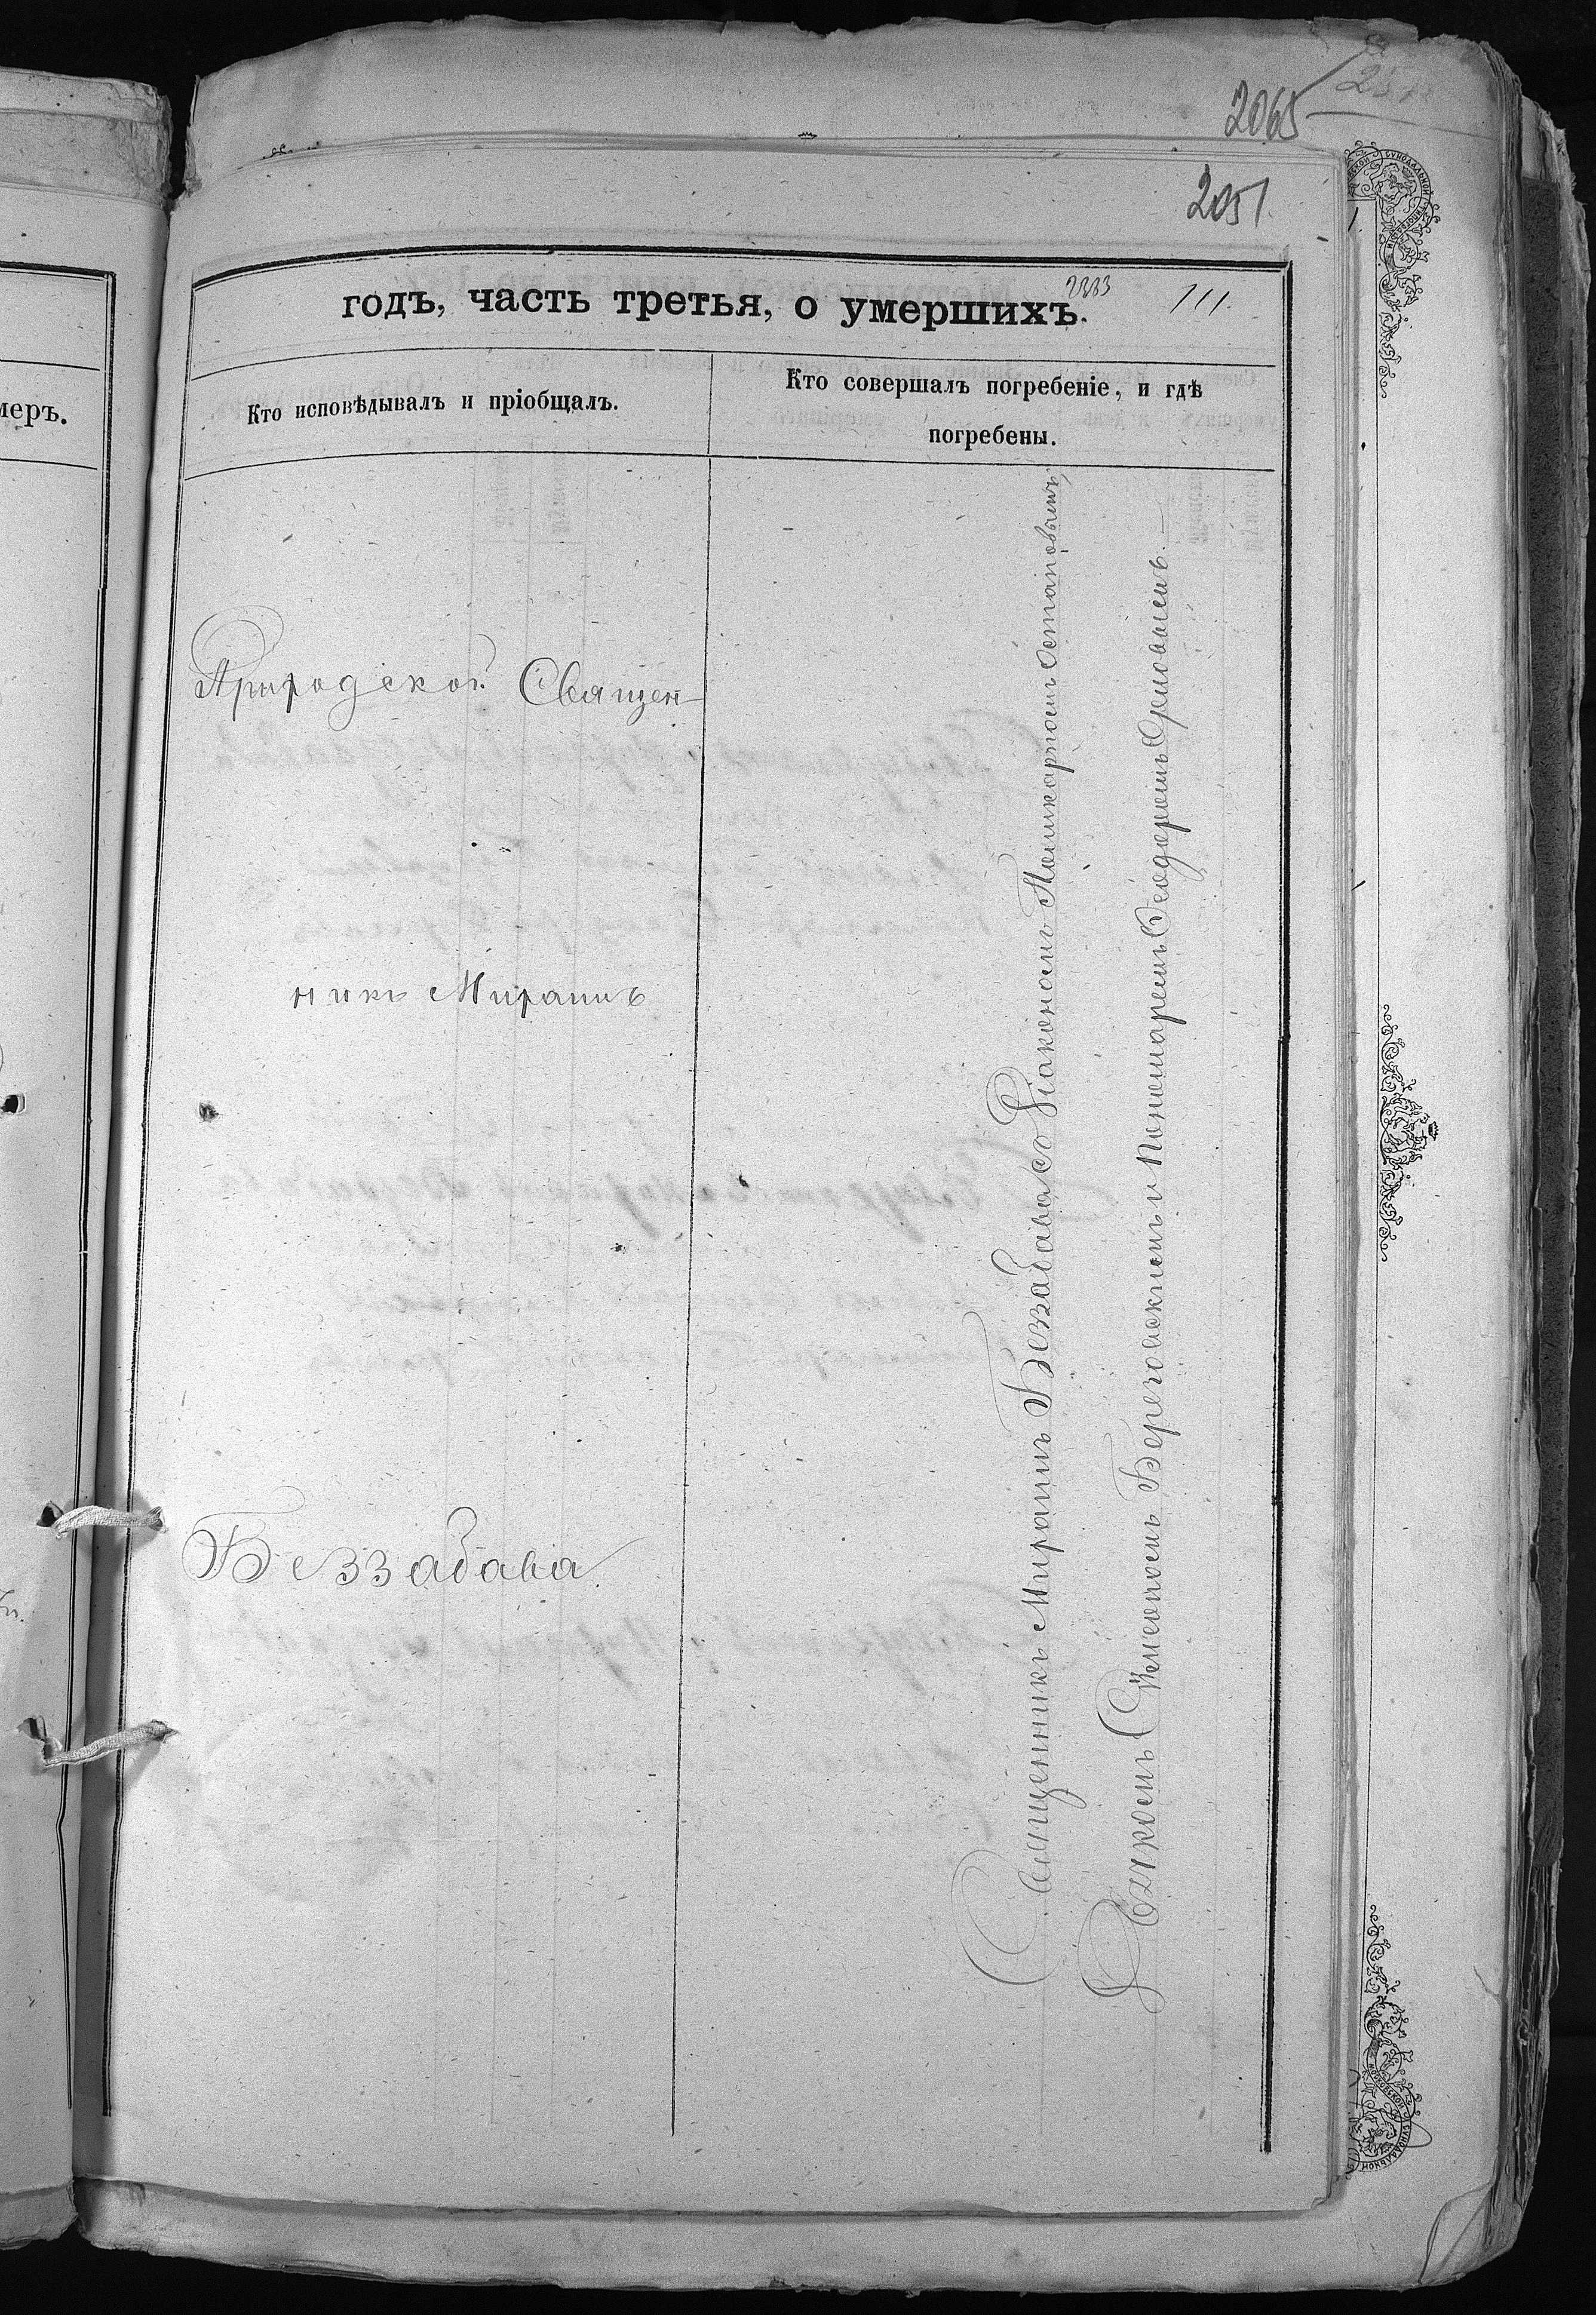 2065
2051.
годъ, часть третья, о умершихъ.
2333
111.
меръ.
Кто исповѣдывалъ и пріобщалъ.
Кто совершалъ погребеніе, и гдѣ
погребены.
Приходской Священ-
никъ Миронъ
Беззабава.
Священникъ Миронъ Беззабава со Діакономъ Поликарпомъ Остаповымъ,
Дьячкомъ Симеономъ Береговскимъ и Пономаремъ Ѳеодоромъ